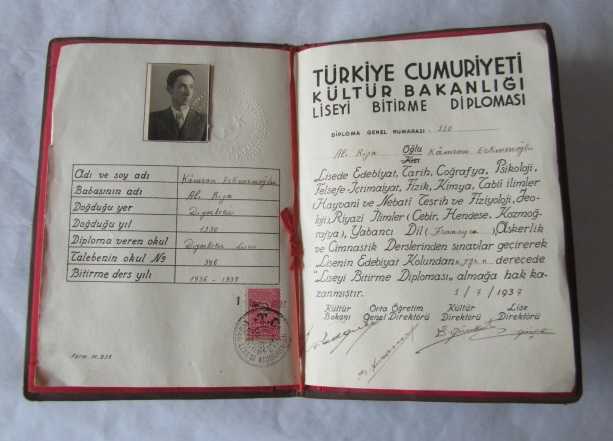 Adı ve soy adı
Babasının adı Ali Rıza
Doğduğu yer Diyarbekir
Doğduğu yıl
Diploma veren okul Diyarbekir Lisesi
Talebenin okul No 346
Bitirme ders yılı 1936 - 1937
T C
TÜRKİYE CUMURİYETİ
KÜLTÜR BAKANLIĞI
LİSEYİ BİTİRME DİPLOMASI
DİPLOMA GENEL NUMARASI : 110
Ali Rıza Oğlu Kâmran
Kızı
Lisede Edebiyat, Tarih, Coğrafya, Psikoloji,
Felsefe-İçtimaiyat, Fizik, Kimya, Tabiî ilimler
(Hayvani ve Nebati Teşrih ve Fiziyoloji, Jeo-
loji), Riyazi İlimler (Cebir, Hendese, Kozmoğ-
rafya), Yabancı Dil (Fransızca) Askerlik
ve Cimnastik Derslerinden sınavlar geçirerek
Lisenin Edebiyat Kolundan derecede
"Liseyi Bitirme Diploması" almağa hak ka-
zanmıştır. 1 / 7 / 1937
Kültür Orta Öğretim Kültür Lise
Bakanı Genel Direktörü Direktörü Direktörü